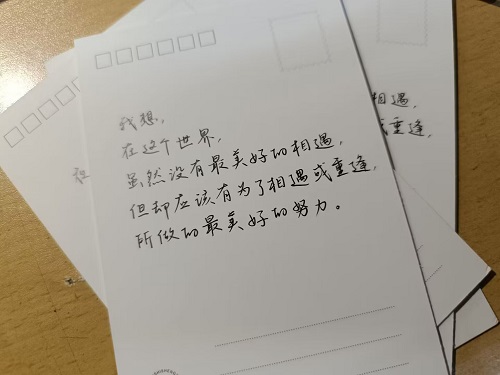 我想，
在这个世界，
虽然没有最美好的相遇，
但却应该有为了相遇或重逢，
所做的最美好的努力。
相遇，
或重逢，